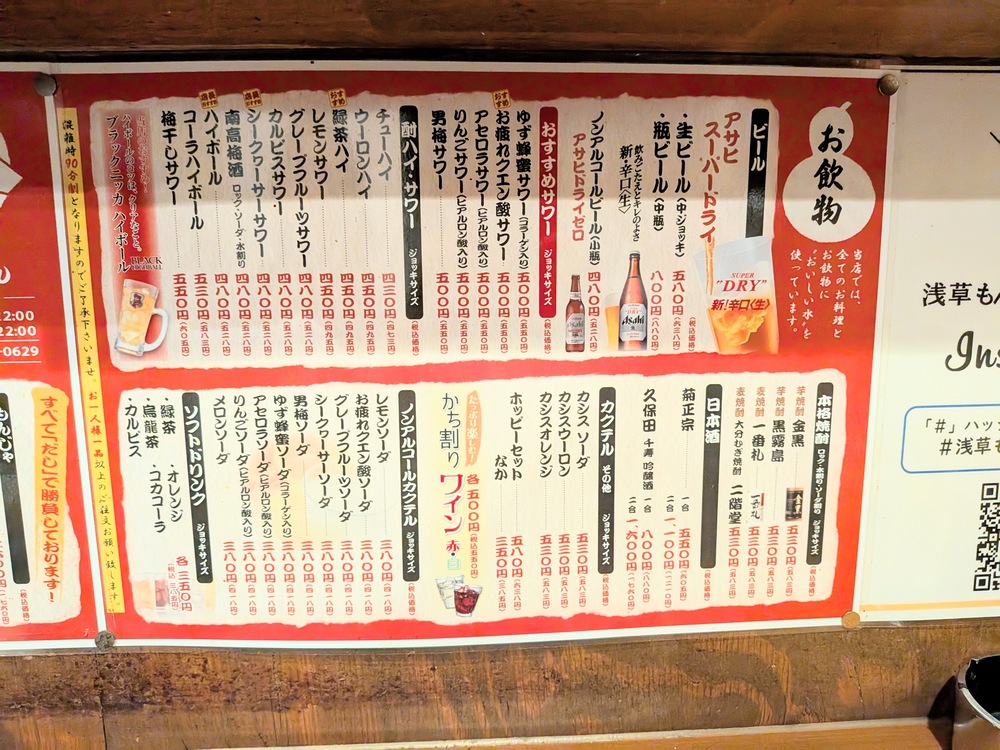 お飲物
当店では、
全てのお料理と
お飲物に
"おいしい水"を
使っています。
ビール
アサヒ
スーパードライ
(税込価格)
・生ビール(中ジョッキ) 五八〇円(六三八円)
・瓶ビール(中瓶) 八〇〇円(八八〇円)
飲みごたえとキレのよさ
新・辛口〈生〉
ノンアルコールビール(小瓶) 四八〇円(五二八円)
アサヒドライゼロ
SUPER
"DRY"
新!辛口〈生〉
Asahi
おすすめサワー ジョッキサイズ (税込価格)
ゆず蜂蜜サワー(コラーゲン入り) 五〇〇円(五五〇円)
おすすめ
お疲れクエン酸サワー 五〇〇円(五五〇円)
アセロラサワー(ヒアルロン酸入り) 五〇〇円(五五〇円)
りんごサワー(ヒアルロン酸入り) 五〇〇円(五五〇円)
男梅サワー 五〇〇円(五五〇円)
酎ハイ・サワー ジョッキサイズ (税込価格)
チューハイ 四三〇円(四七三円)
ウーロンハイ 四五〇円(四九五円)
おすすめ
緑茶ハイ 四五〇円(四九五円)
レモンサワー 四五〇円(四九五円)
グレープフルーツサワー 四八〇円(五二八円)
カルピスサワー 四八〇円(五二八円)
シークヮーサーサワー 四八〇円(五二八円)
南高梅酒 ロック・ソーダ・水割り 四八〇円(五二八円)
ハイボール 四八〇円(五二八円)
コーラハイボール 五三〇円(五八三円)
梅干しサワー 五五〇円(六〇五円)
ハイボールのコツは、クリアなこと。
ブラックニッカ ハイボール
BLACK
HIGHBALL
混雑時90分制となりますのでご了承下さいませ。お一人様一品以上のご注文お願い致します。
本格焼酎 ロック・水割り・ソーダ割り ジョッキサイズ (税込価格)
芋焼酎 金黒 五三〇円(五八三円)
芋焼酎 黒霧島 五三〇円(五八三円)
麦焼酎 一番札 五三〇円(五八三円)
麦焼酎 大分むぎ焼酎 二階堂 五三〇円(五八三円)
日本酒 (税込価格)
菊正宗 一合 五五〇円(六〇五円)
二合 一、一〇〇円(一、二一〇円)
久保田 千寿 吟醸酒 一合 八〇〇円(八八〇円)
二合 一、六〇〇円(一、七六〇円)
カクテル その他 ジョッキサイズ (税込価格)
カシス ソーダ 五三〇円(五八三円)
カシスウーロン 五三〇円(五八三円)
カシスオレンジ 五三〇円(五八三円)
ホッピーセット 五八〇円(六三八円)
なか 三五〇円(三八五円)
たっぷり楽しむ!
かち割りワイン 赤・白
各五〇〇円(税込五五〇円)
ノンアルコールカクテル ジョッキサイズ (税込価格)
レモンソーダ 三八〇円(四一八円)
お疲れクエン酸ソーダ 三八〇円(四一八円)
グレープフルーツソーダ 三八〇円(四一八円)
シークヮーサーソーダ 三八〇円(四一八円)
男梅ソーダ 三八〇円(四一八円)
ゆず蜂蜜ソーダ(コラーゲン入り) 三八〇円(四一八円)
アセロラソーダ(ヒアルロン酸入り) 三八〇円(四一八円)
りんごソーダ(ヒアルロン酸入り) 三八〇円(四一八円)
メロンソーダ 三八〇円(四一八円)
ソフトドリンク ジョッキサイズ
・緑茶 ・オレンジ
・烏龍茶 ・コカコーラ
・カルピス
各三五〇円
(税込 三八五円)
22:00
22:00
-0629
すべて「だし」で勝負しております!
もんじゃ
浅草も
Ins
「#」ハッ
#浅草も